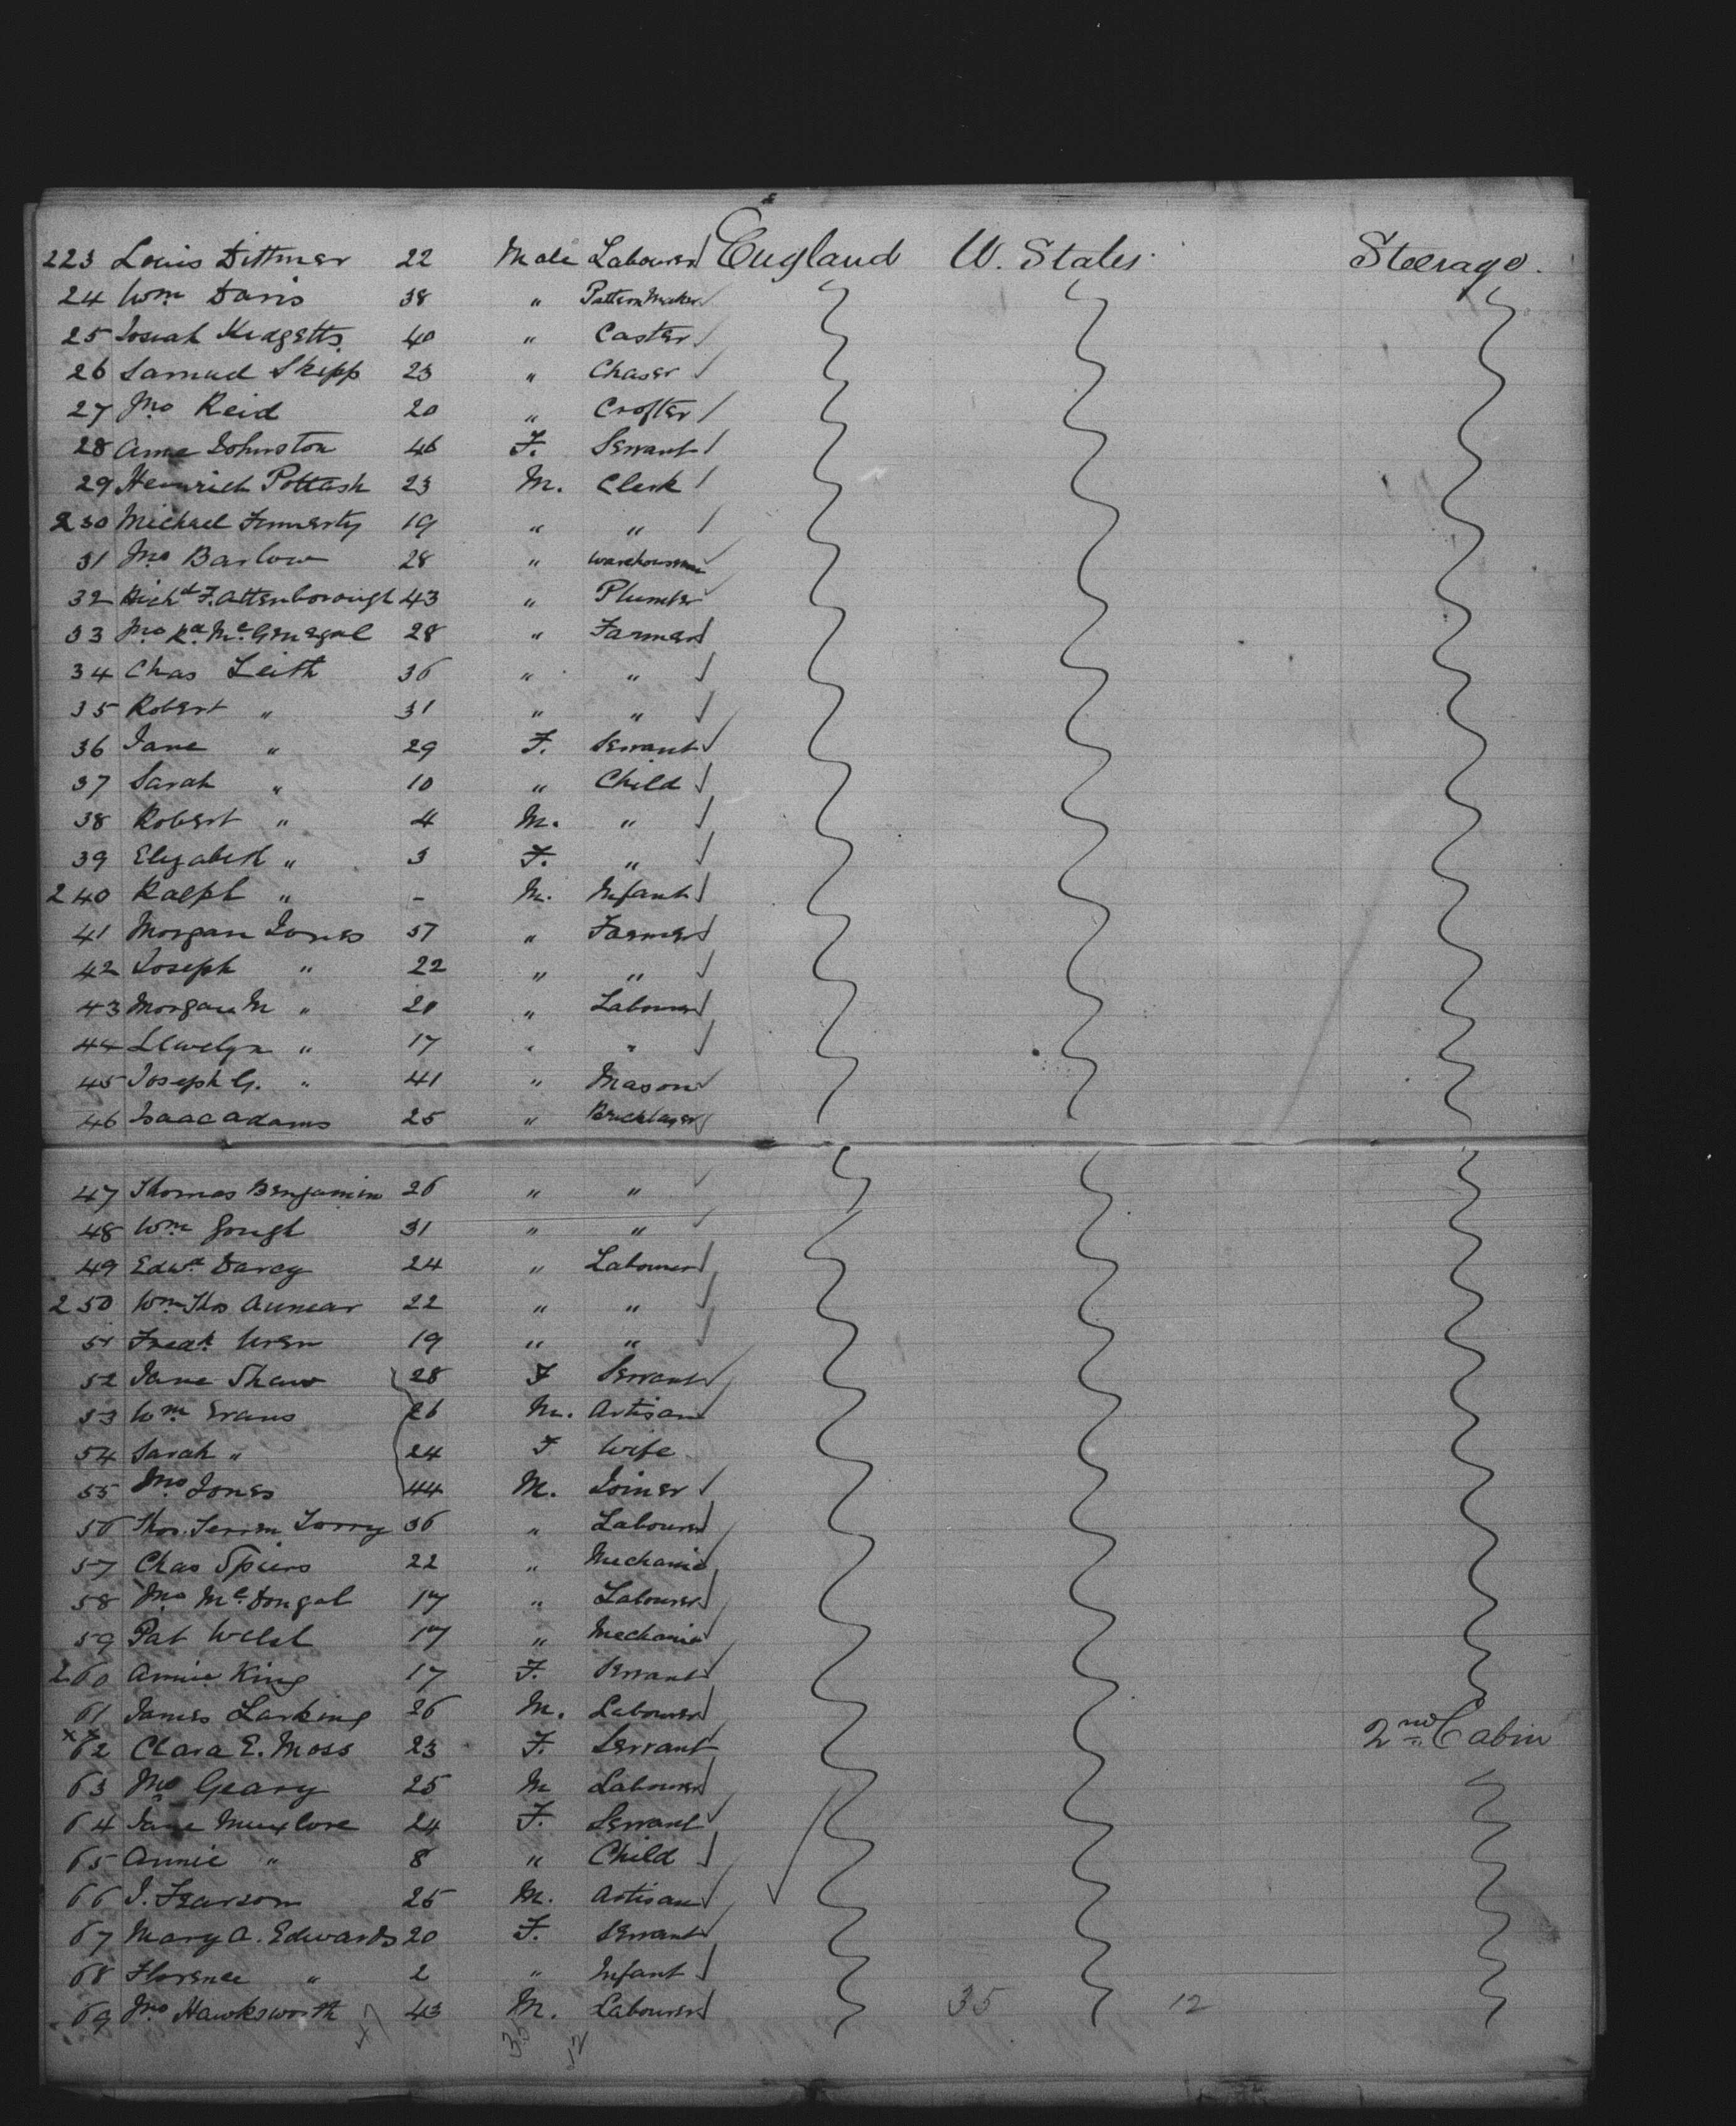 223 Louis Dittmar 22 Male Labourer England U. States Steerage.
24 Wm Davis 38 " Pattern Maker
25 Josiah Hedgetts 40 " Caster
26 Samuel Skipp 23 " Chaser
27 Jno Reid 20 " Crofter
28 Anne Johnston 46 F. Servant
29 Heinrich Pottash 23 M. Clerk
230 Michael Finnerty 19 " "
31 Jno Barlow 28 " Warehouseman
32 Richd F. Attenborough 43 " Plumber
33 Jno Rd. Mc Gonegal 28 " Farmer
34 Chas Leith 36 " "
35 Robert " 31 " "
36 Jane " 29 F. Servant
37 Sarah " 10 " Child
38 Robert " 4 M. "
39 Elizabeth " 3 F. "
240 Ralph " - M. Infant
41 Morgan Jones 57 " Farmer
42 Joseph " 22 " "
43 Morgan M " 20 " Labourer
44 Llwelyn " 17 " "
45 Joseph G. " 41 " Mason
46 Isaac Adams 25 " Bricklayer
47 Thomas Benjamin 26 " "
48 Wm Gough 31 " "
49 Edwd Darcy 24 " Labourer
250 Wm Thos 22 " "
51 Fredk Wren 19 " "
52 Jane Shaw 28 F Servant
53 Wm Evans 26 M. Artisan
54 Sarah " 24 F Wife
55 Jno Jones 44 M. Joiner
56 Thos. Torry 36 " Labourer
57 Chas Spiers 22 " Mechanic
58 Jno Mc Dougal 17 " Labourer
59 Pat Welsh 17 " Mechanic
260 Annie King 17 F. Servant
61 James Larking 26 M. Labourer
xx 62 Clara E. Moss 23 F. Servant 2nd Cabin
63 Jno Geary 25 M Labourer
64 Jane Muxlove 24 F. Servant
65 Annie " 8 " Child
66 J. Fearson 25 M. Artisan
67 Mary A. Edwards 20 F. Servant
68 Florence " 2 " Infant
69 Jno Hawksworth 43 M. Labourer 35 12
47 35 12